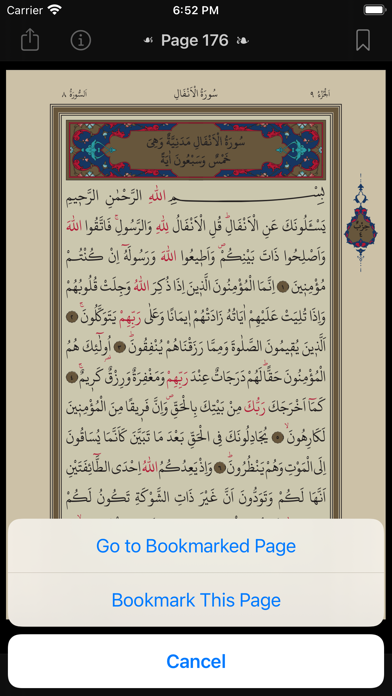 Carrier 6:52 PM
☙ Page 176 ❧
اَلسُّورَةُ ٨ سُورَةُ الْاَنْفَالِ اَلْجُزْءُ ٩
سُورَةُ الْاَنْفَالِ مَدَنِيَّةٌ وَهِيَ
خَمْسٌ وَسَبْعُونَ اٰيَةً
بِسْمِ اللّٰهِ الرَّحْمٰنِ الرَّحِيمِ
يَسْـَٔلُونَكَ عَنِ الْاَنْفَالِۜ قُلِ الْاَنْفَالُ لِلّٰهِ وَالرَّسُولِۚ فَاتَّقُوا اللّٰهَ
وَاَصْلِحُوا ذَاتَ بَيْنِكُمْۖ وَاَطِيعُوا اللّٰهَ وَرَسُولَهُٓ اِنْ كُنْتُمْ
مُؤْمِنِينَ ١ اِنَّمَا الْمُؤْمِنُونَ الَّذِينَ اِذَا ذُكِرَ اللّٰهُ وَجِلَتْ قُلُوبُهُمْ
وَاِذَا تُلِيَتْ عَلَيْهِمْ اٰيَاتُهُ زَادَتْهُمْ اِيمَانًا وَعَلٰى رَبِّهِمْ يَتَوَكَّلُونَۚ ٢
اَلَّذِينَ يُقِيمُونَ الصَّلٰوةَ وَمِمَّا رَزَقْنَاهُمْ يُنْفِقُونَۜ ٣ اُو۬لٰٓئِكَ هُمُ
الْمُؤْمِنُونَ حَقًّاۜ لَهُمْ دَرَجَاتٌ عِنْدَ رَبِّهِمْ وَمَغْفِرَةٌ وَرِزْقٌ كَرِيمٌۚ ٤
كَمَٓا اَخْرَجَكَ رَبُّكَ مِنْ بَيْتِكَ بِالْحَقِّۖ وَاِنَّ فَرِيقًا مِنَ الْمُؤْمِنِينَ
لَكَارِهُونَۙ ٥ يُجَادِلُونَكَ فِي الْحَقِّ بَعْدَ مَا تَبَيَّنَ كَاَنَّمَا يُسَاقُونَ
اِلَى الْمَوْتِ وَهُمْ يَنْظُرُونَۜ ٦ وَاِذْ يَعِدُكُمُ اللّٰهُ اِحْدَى الطَّٓائِفَتَيْنِ
اَنَّهَا لَكُمْ وَتَوَدُّونَ اَنَّ غَيْرَ ذَاتِ الشَّوْكَةِ تَكُونُ لَكُمْ
Go to Bookmarked Page
Bookmark This Page
Cancel